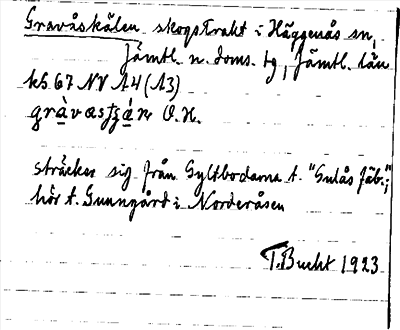 Gravåskälen skogstrakt i Häggenås sn,
Jämtl. n. doms. tg, Jämtl. län
kb 67 NV A4 (A3)
O.H.
sträcker sig från Gyltbodarna t. "Gulås fäb.";
hör t. Gunngård i Norderåsen
T. Bucht 1923